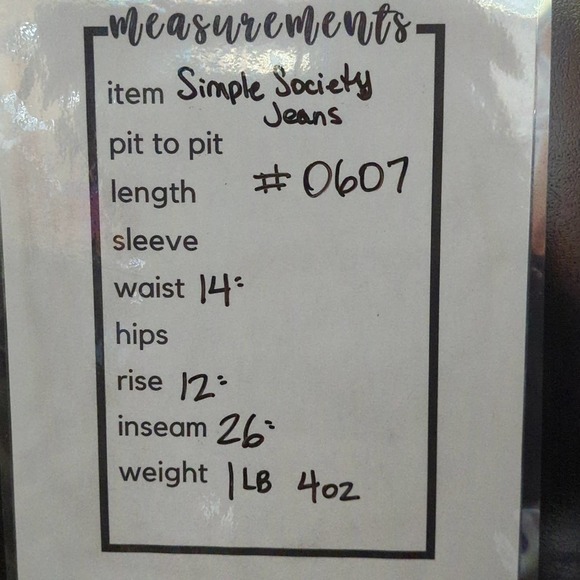 measurements
item Simple Society
Jeans
pit to pit
# 0607
length
sleeve
waist 14"
hips
rise 12"
inseam 26"
weight 1 LB 4oz